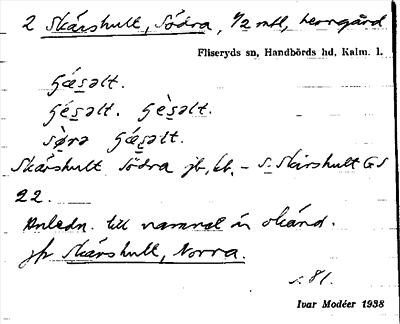 2 Skårshult, Södra, 1/2 mtl, herrgård
Fliseryds sn, Handbörds hd, Kalm. l.
Skårshult Södra jb, kb. – S. Skårshult GS
22.
Anledn. till namnet är okänd.
jfr Skårshult, Norra.
s. 81.
Ivar Modéer 1938